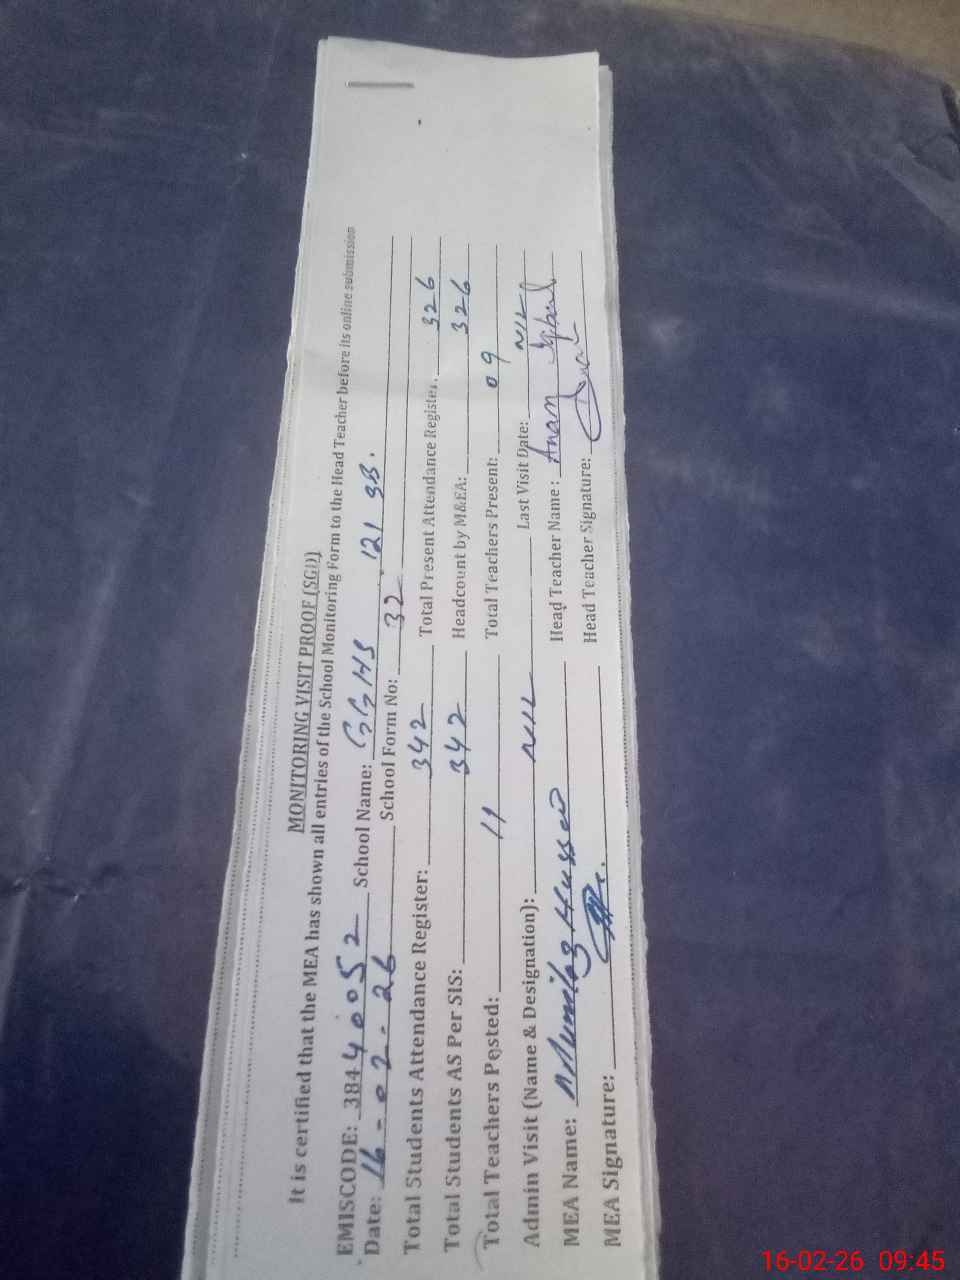 MONITORING VISIT PROOF (SGD)
It is certified that the MEA has shown all entries of the School Monitoring Form to the Head Teacher before its online submission
EMISCODE: 38440052 School Name: GGHS 121 SB.
Date: 16-02-26 School Form No: 32
Total Students Attendance Register: 342 Total Present Attendance Register: 326
Total Students AS Per SIS: 342 Headcount by M&EA: 326
Total Teachers Posted: 11 Total Teachers Present: 09
Admin Visit (Name & Designation): NIL Last Visit Date: NIL
MEA Name: Hussain Head Teacher Name: Anam Iqbal
MEA Signature: Head Teacher Signature: Anam
16-02-26 09:45